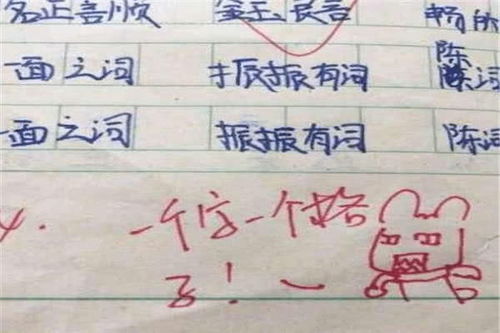 名正言顺 金玉良言 畅所
陈
一面之词 振振有词 陈词
一面之词 振振有词 陈词
一个字一个格
子！